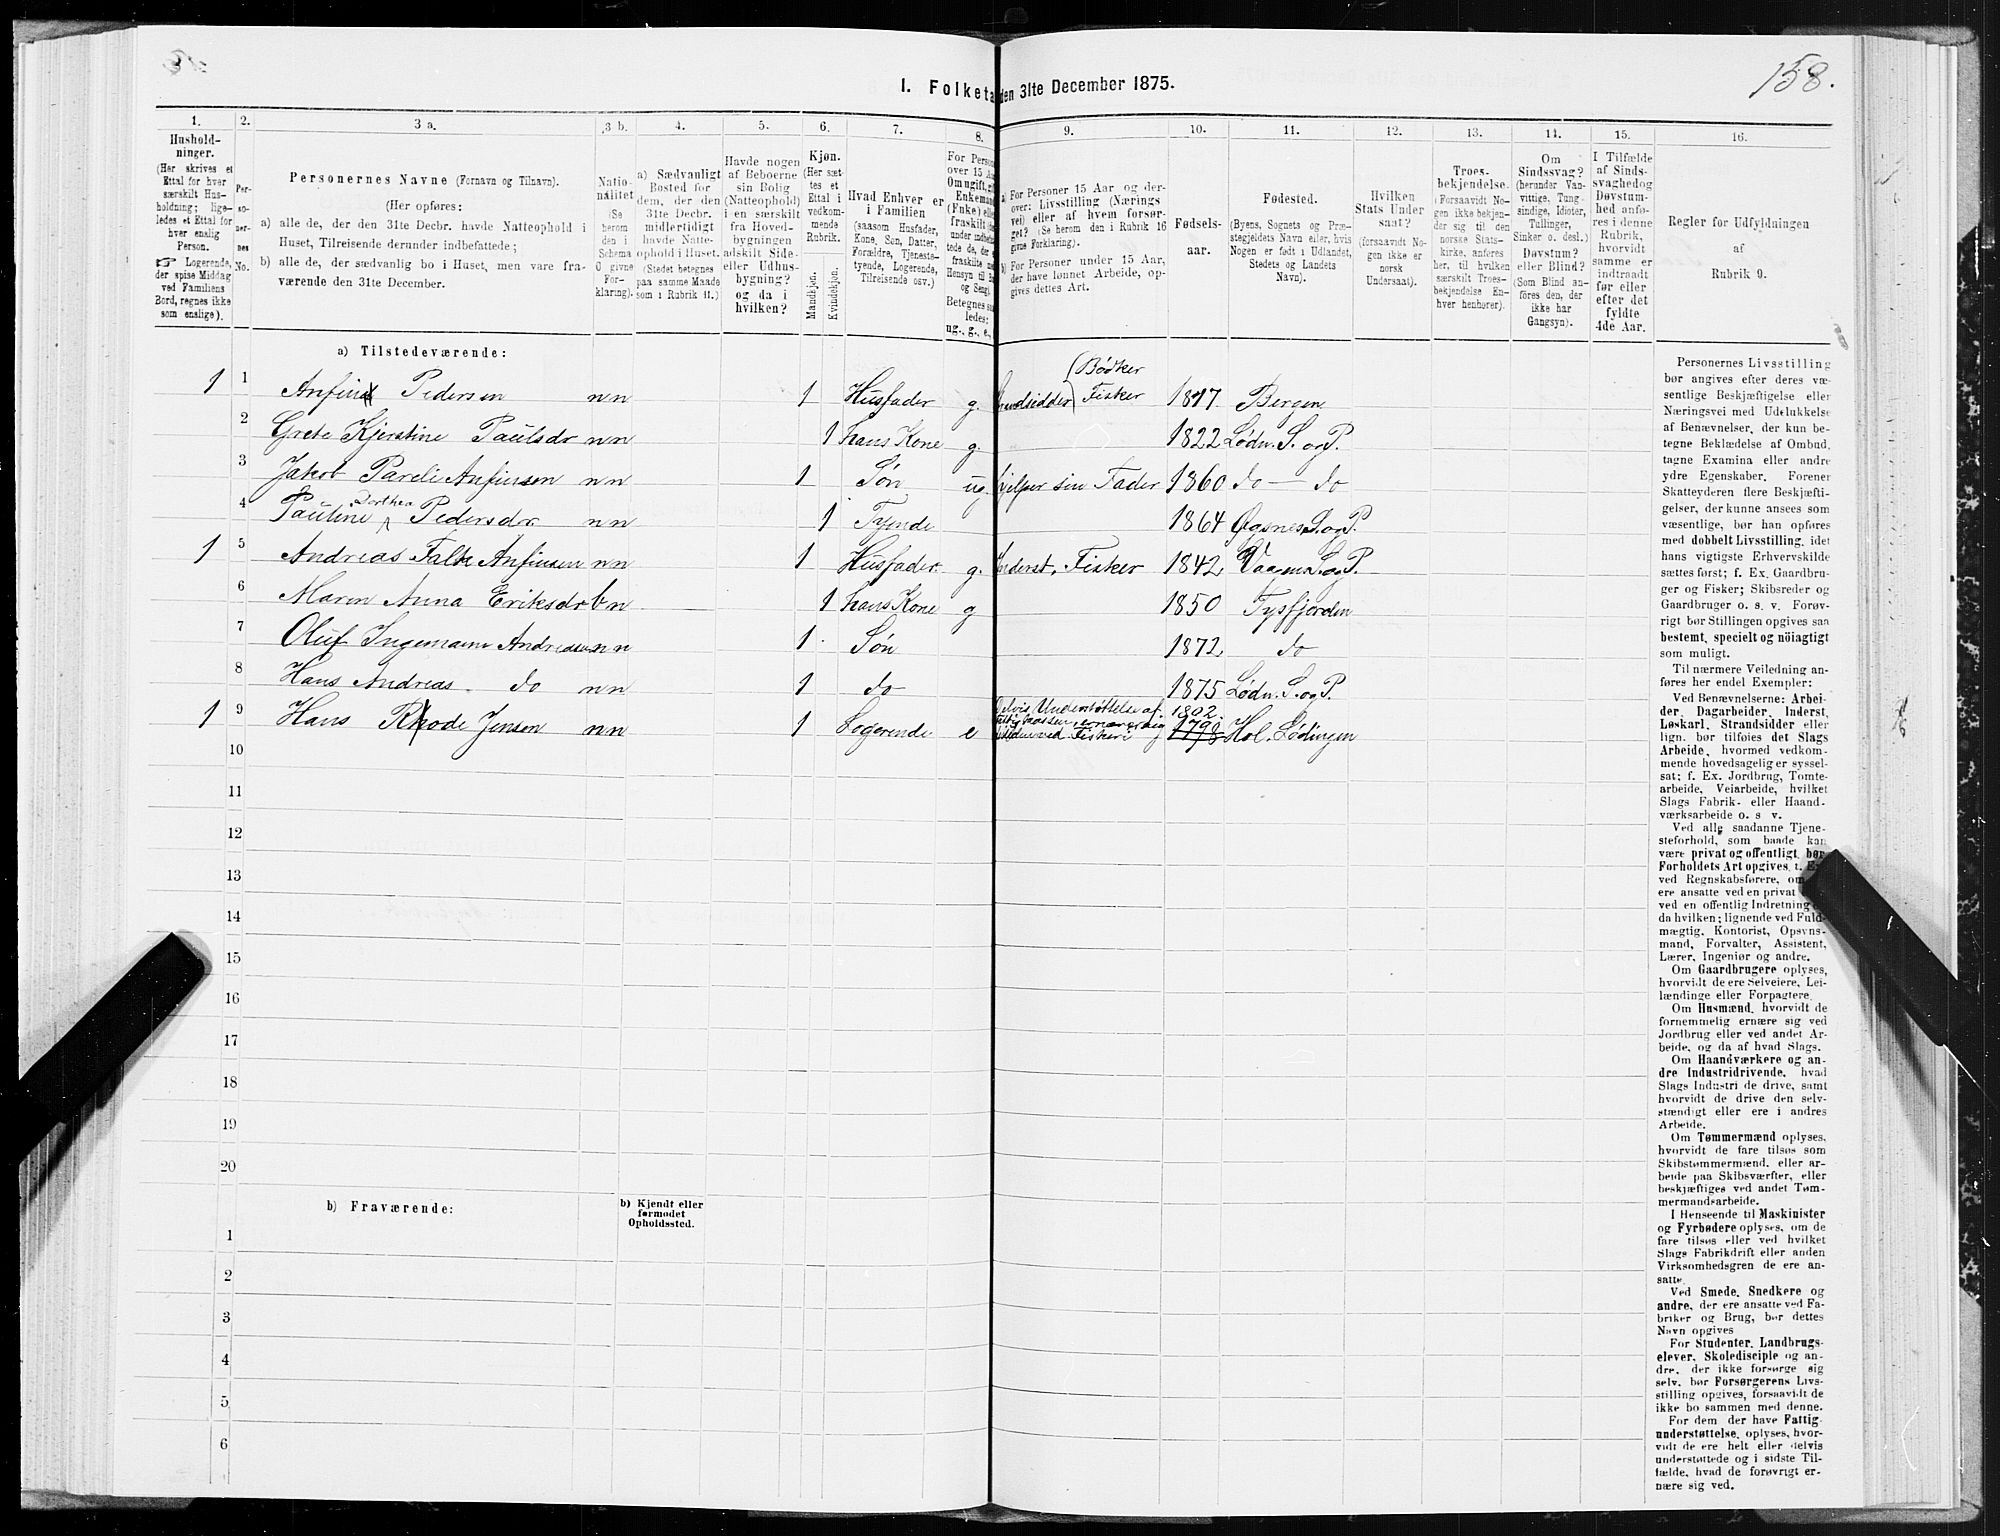 158.
I. Folketa den 31te December 1875.
1. 2. 3 a. 3 b. 4. 5. 6. 7. 8. 9. 10. 11. 12. 13. 14. 15. 16.
Hushold-
ninger.
(Her skrives et
Ettal for hver
særskilt Hus-
holdning; lige-
ledes et Ettal for
hver enslig
Person.
Logerende,
der spise Middag
ved Familiens
Bord, regnes ikke
som enslige).
Per-
so-
ner-
nes
No.
Personernes Navne (Fornavn og Tilnavn).
(Her opføres:
a) alle de, der den 31te Decbr. havde Natteophold i
Huset, Tilreisende derunder indbefattede;
b) alle de, der sædvanlig bo i Huset, men vare fra-
værende den 31te December.
Natio-
nalitet
(Se
herom
den i
Schema
O givne
For-
klaring).
a) Sædvanligt
Bosted for
dem, der den
31te Decbr.
midlertidigt
havde Natte-
ophold i Huset.
(Stedet betegnes
paa samme Maade
som i Rubrik 11.)
Havde nogen
af Beboerne
sin Bolig
(Natteophold)
i en særskilt
fra Hoved-
bygningen
adskilt Side-
eller Udhus-
bygning?
og da i
hvilken?
Kjøn.
(Her sæt-
tes et
Ettal i
vedkom-
mende
Rubrik.
Mandkjøn.
Kvindekjøn.
Hvad Enhver er
i Familien
(saasom Husfader,
Kone, Søn, Datter,
Forældre, Tjeneste-
tyende, Logerende,
Tilreisende osv.)
For Person
over 15 Aa
Om ugift, gi
Enkemand
(Enke) elle
fraskilt
Betegnes saa
ledes:
ug., g., e.,
a) For Personer 15 Aar og der-
over: Livsstilling (Nærings
vei) eller af hvem forsør-
get? (Se herom den i Rubrik 16
givne Forklaring).
b) For Personer under 15 Aar,
der have lønnet Arbeide, op-
gives dettes Art.
Fødsels-
aar.
Fødested.
(Byens, Sognets og Præ-
stegjeldets Navn eller, hvis
Nogen er født i Udlandet,
Stedets og Landets
Navn).
Hvilken
Stats Under
saat?
(forsaavidt No-
gen ikke er
norsk
Undersaat).
Troes-
bekjendelse.
(Forsaavidt No-
gen ikke bekjen-
der sig til den
norske Stats-
kirke, anføres
her, til hvilken
særskilt Troes-
bekjendelse En-
hver henhører).
Om
Sindssvag?
(herunder Van-
vittige, Tung-
sindige, Idioter,
Tullinger,
Sinker o. desl.)
Døvstum?
eller Blind?
(Som Blind an-
føres den, der
ikke har
Gangsyn).
I Tilfælde
af Sinds-
svaghed og
Døvstum-
hed anfø-
res i denne
Rubrik,
hvorvidt
samme er
indtraadt
før eller
efter det
fyldte
4de Aar.
Regler for Udfyldningen
af
Rubrik 9.
a) Tilstedeværende:
1 1 Anfind Pedersen n n 1 Husfader g. Strandsidder (Bødker Fisker 1817. Bergen
2 Grete Kjerstine Paulsdr n n 1 hans Kone g. 1822 Lødn. S. og P.
3 Jakob Pareli Anfinsen n n 1 Søn ug. hjelper sin Fader 1860 do — do
4 Pauline Dorthea Pedersdr n n 1 Tyende 1864 Øgsnes S. og P.
1 5 Andreas Falk Anfinsen n n 1 Husfader g. Inderst, Fisker 1842 Vaagen S. og P.
6 Maren Anna Eriksdr b n 1 hans Kone g 1850 Tysfjorden
7 Oluf Ingemann Andreasen n n 1 Søn 1872 do
8 Hans Andreas do n n 1 do 1875 Lødn. S. og P.
1 9 Hans Rhode Jensen n n 1 Logerende e Delvis Understøttelse af Fattigkassen, ernærer sig ved Fiskeri 1802 1798 Hol. Lødingen
10
11
12
13
14
15
16
17
18
19
20
b) Fraværende:
b) Kjendt eller
formodet
Opholdssted.
1
2
3
4
5
6
Personernes Livsstilling
bør angives efter deres væ-
sentlige Beskjæftigelse eller
Næringsvei med Udelukkelse
af Benævnelser, der kun be-
tegne Beklædelse af Ombud,
tagne Examina eller andre
ydre Egenskaber. Forener
Skatteyderen flere Beskjæfti-
gelser, der kunne ansees som
væsentlige, bør han opføres
med dobbelt Livsstilling, idet
hans vigtigste Erhvervskilde
sættes først; f. Ex. Gaardbru-
ger og Fisker; Skibsreder og
Gaardbruger o. s. v. Forøv-
rigt bør Stillingen opgives saa
bestemt, specielt og nøiagtigt
som muligt.
Til nærmere Veiledning an-
føres her endel Exempler:
Ved Benævnelserne: Arbei-
der, Dagarbeider, Inderst,
Løskarl, Strandsidder eller
lign. bør tilføies det Slags
Arbeide, hvormed vedkom-
mende hovedsagelig er syssel-
sat; f. Ex. Jordbrug, Tomte-
arbeide, Veiarbeide, hvilket
Slags Fabrik- eller Haand-
værksarbeide o. s v.
Ved alle saadanne Tjene-
steforhold, som baade kan
være privat og offentligt, bør
Forholdets Art opgives, t. Ex.
ved Regnskabsførere, om
ere ansatte ved en privat
ved en offentlig Indretning
da hvilken; lignende ved Fuld-
mægtig, Kontorist, Opsyns-
mand, Forvalter, Assistent,
Lærer, Ingeniør og andre.
Om Gaardbrugere oplyses,
hvorvidt de ere Selveiere, Lei-
lændinge eller Forpagtere.
Om Husmænd, hvorvidt de
fornemmelig ernære sig ved
Jordbrug eller ved andet Ar-
beide, og da af hvad Slags.
Om Haandværkere og an-
dre Industridrivende, hvad
Slags Industri de drive, samt
hvorvidt de drive den selv-
stændigt eller ere i andres
Arbeide.
Om Tømmermænd oplyses,
hvorvidt de fare tilsøs som
Skibstømmermænd, eller ar-
beide paa Skibsværfter, eller
beskjæftiges ved andet Tøm-
mermandsarbeide.
I Henseende til Maskinister
og Fyrbødere oplyses, om de
fare tilsøs eller ved hvilket
Slags Fabrikdrift eller anden
Virksomhedsgren de ere an-
satte.
Ved Smede, Snedkere og
andre, der ere ansatte ved Fa-
briker og Brug, bør dettes
Navn opgives
For Studenter, Landbrugs-
elever, Skoledisciple og an-
dre, der ikke forsørge sig
selv, bør Forsørgerens Livs-
stilling opgives, forsaavidt de
ikke bo sammen med denne.
For dem der have Fattig-
understøttelse, oplyses, hvor-
vidt de ere helt eller delvis
understøttede og i sidste Til-
fælde, hvad de forøvrigt er-
nære sig ved.